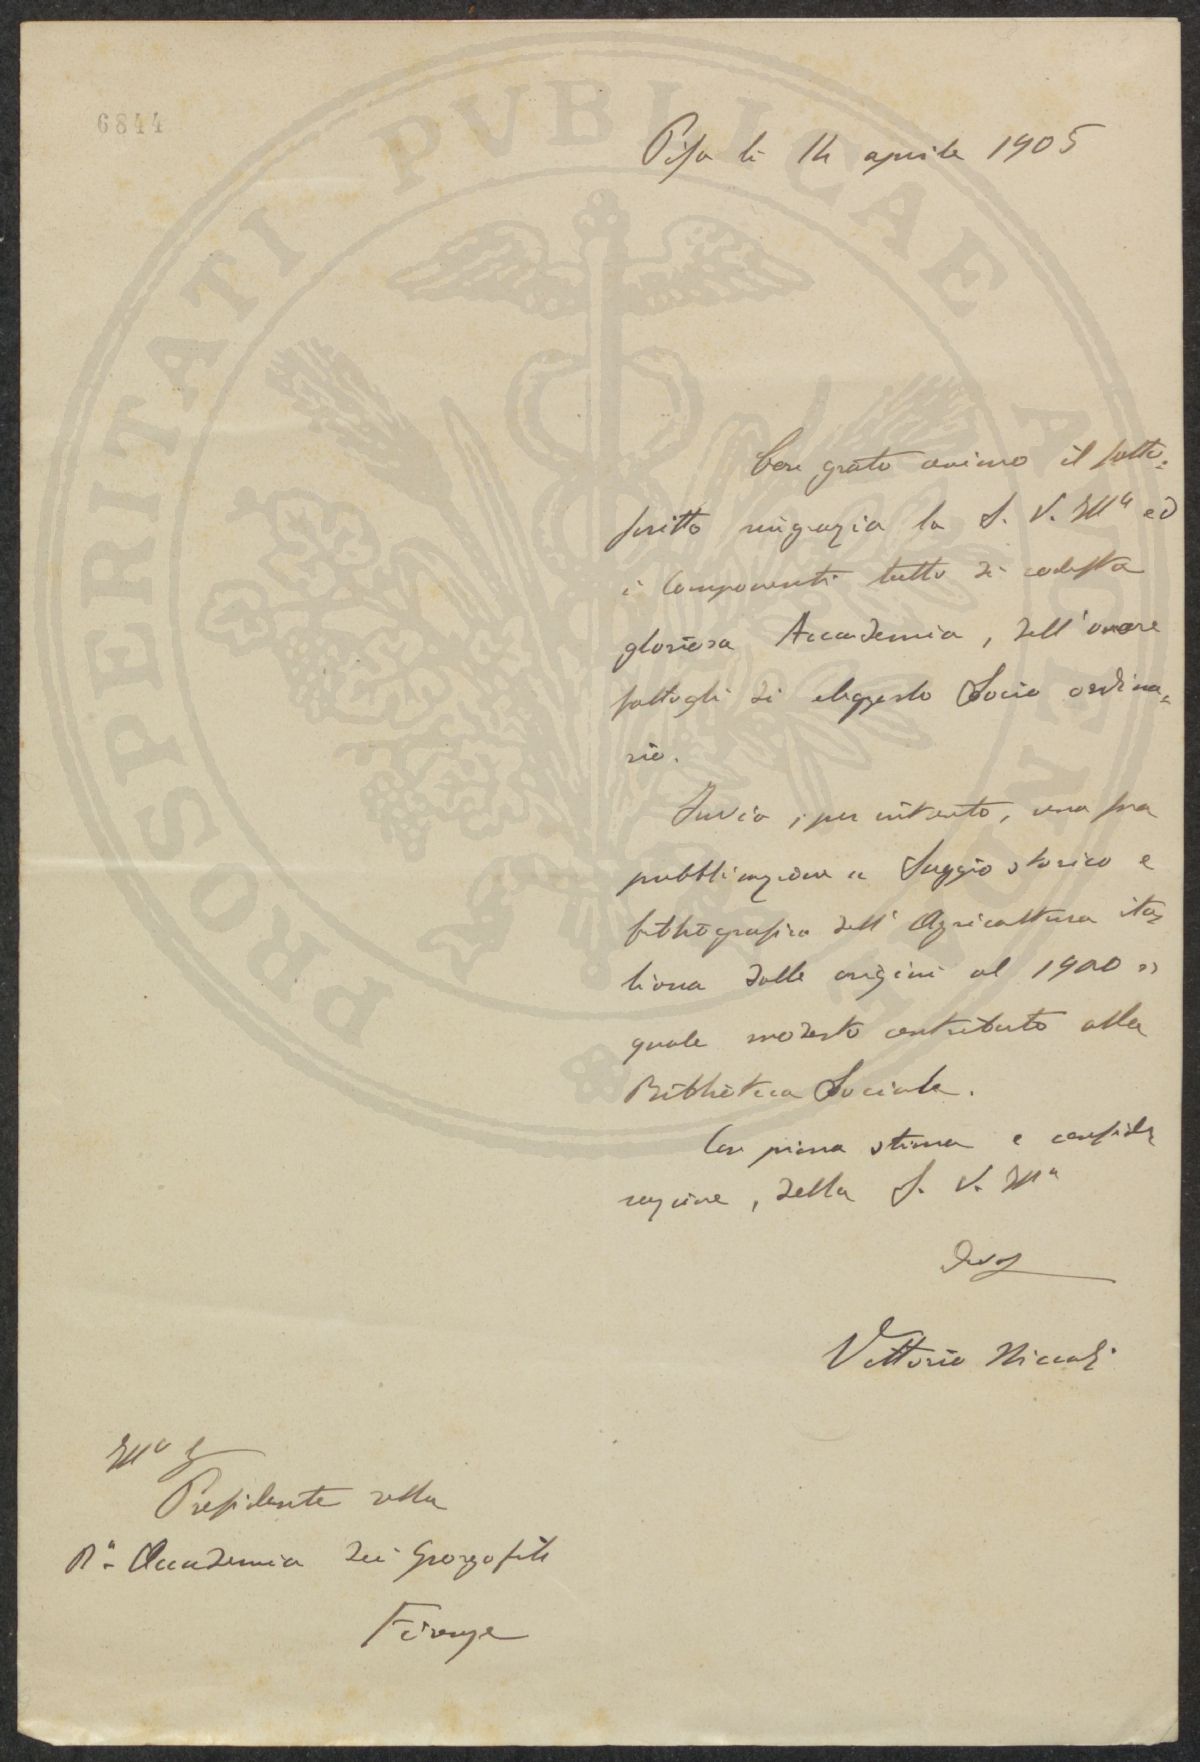 6844
PROSPERITATI PVBLICAE AVGENDAE
Pisa li 14 aprile 1905
Con grato animo il sotto=
scritto ringrazia la S. V. Ill.a ed
i componenti tutti di codesta
gloriosa Accademia, dell'onore
fattogli di eleggerlo Socio ordina=
rio.
Invia, per intanto, una sua
pubblicazione « Saggio storico e
bibliografico dell'Agricoltura ita=
liana dalle origini al 1900 »
quale modesto contributo alla
Biblioteca Sociale.
Con piena stima e conside
razione, della S. V. Ill.a
Dev.
Vittorio Niccoli
Ill.o S.
Presidente della
R.a Accademia dei Georgofili
Firenze